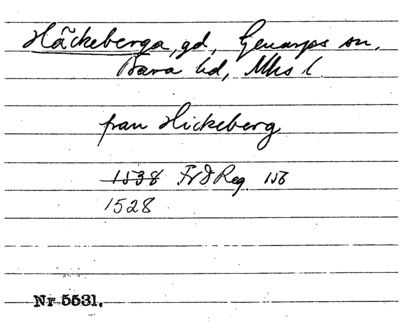 Häckeberga, gd, Genarps sn,
Bara hd, Mhs l.
fran Hickeberg
1538 Fr I Reg 153
1528
Nr 5531.